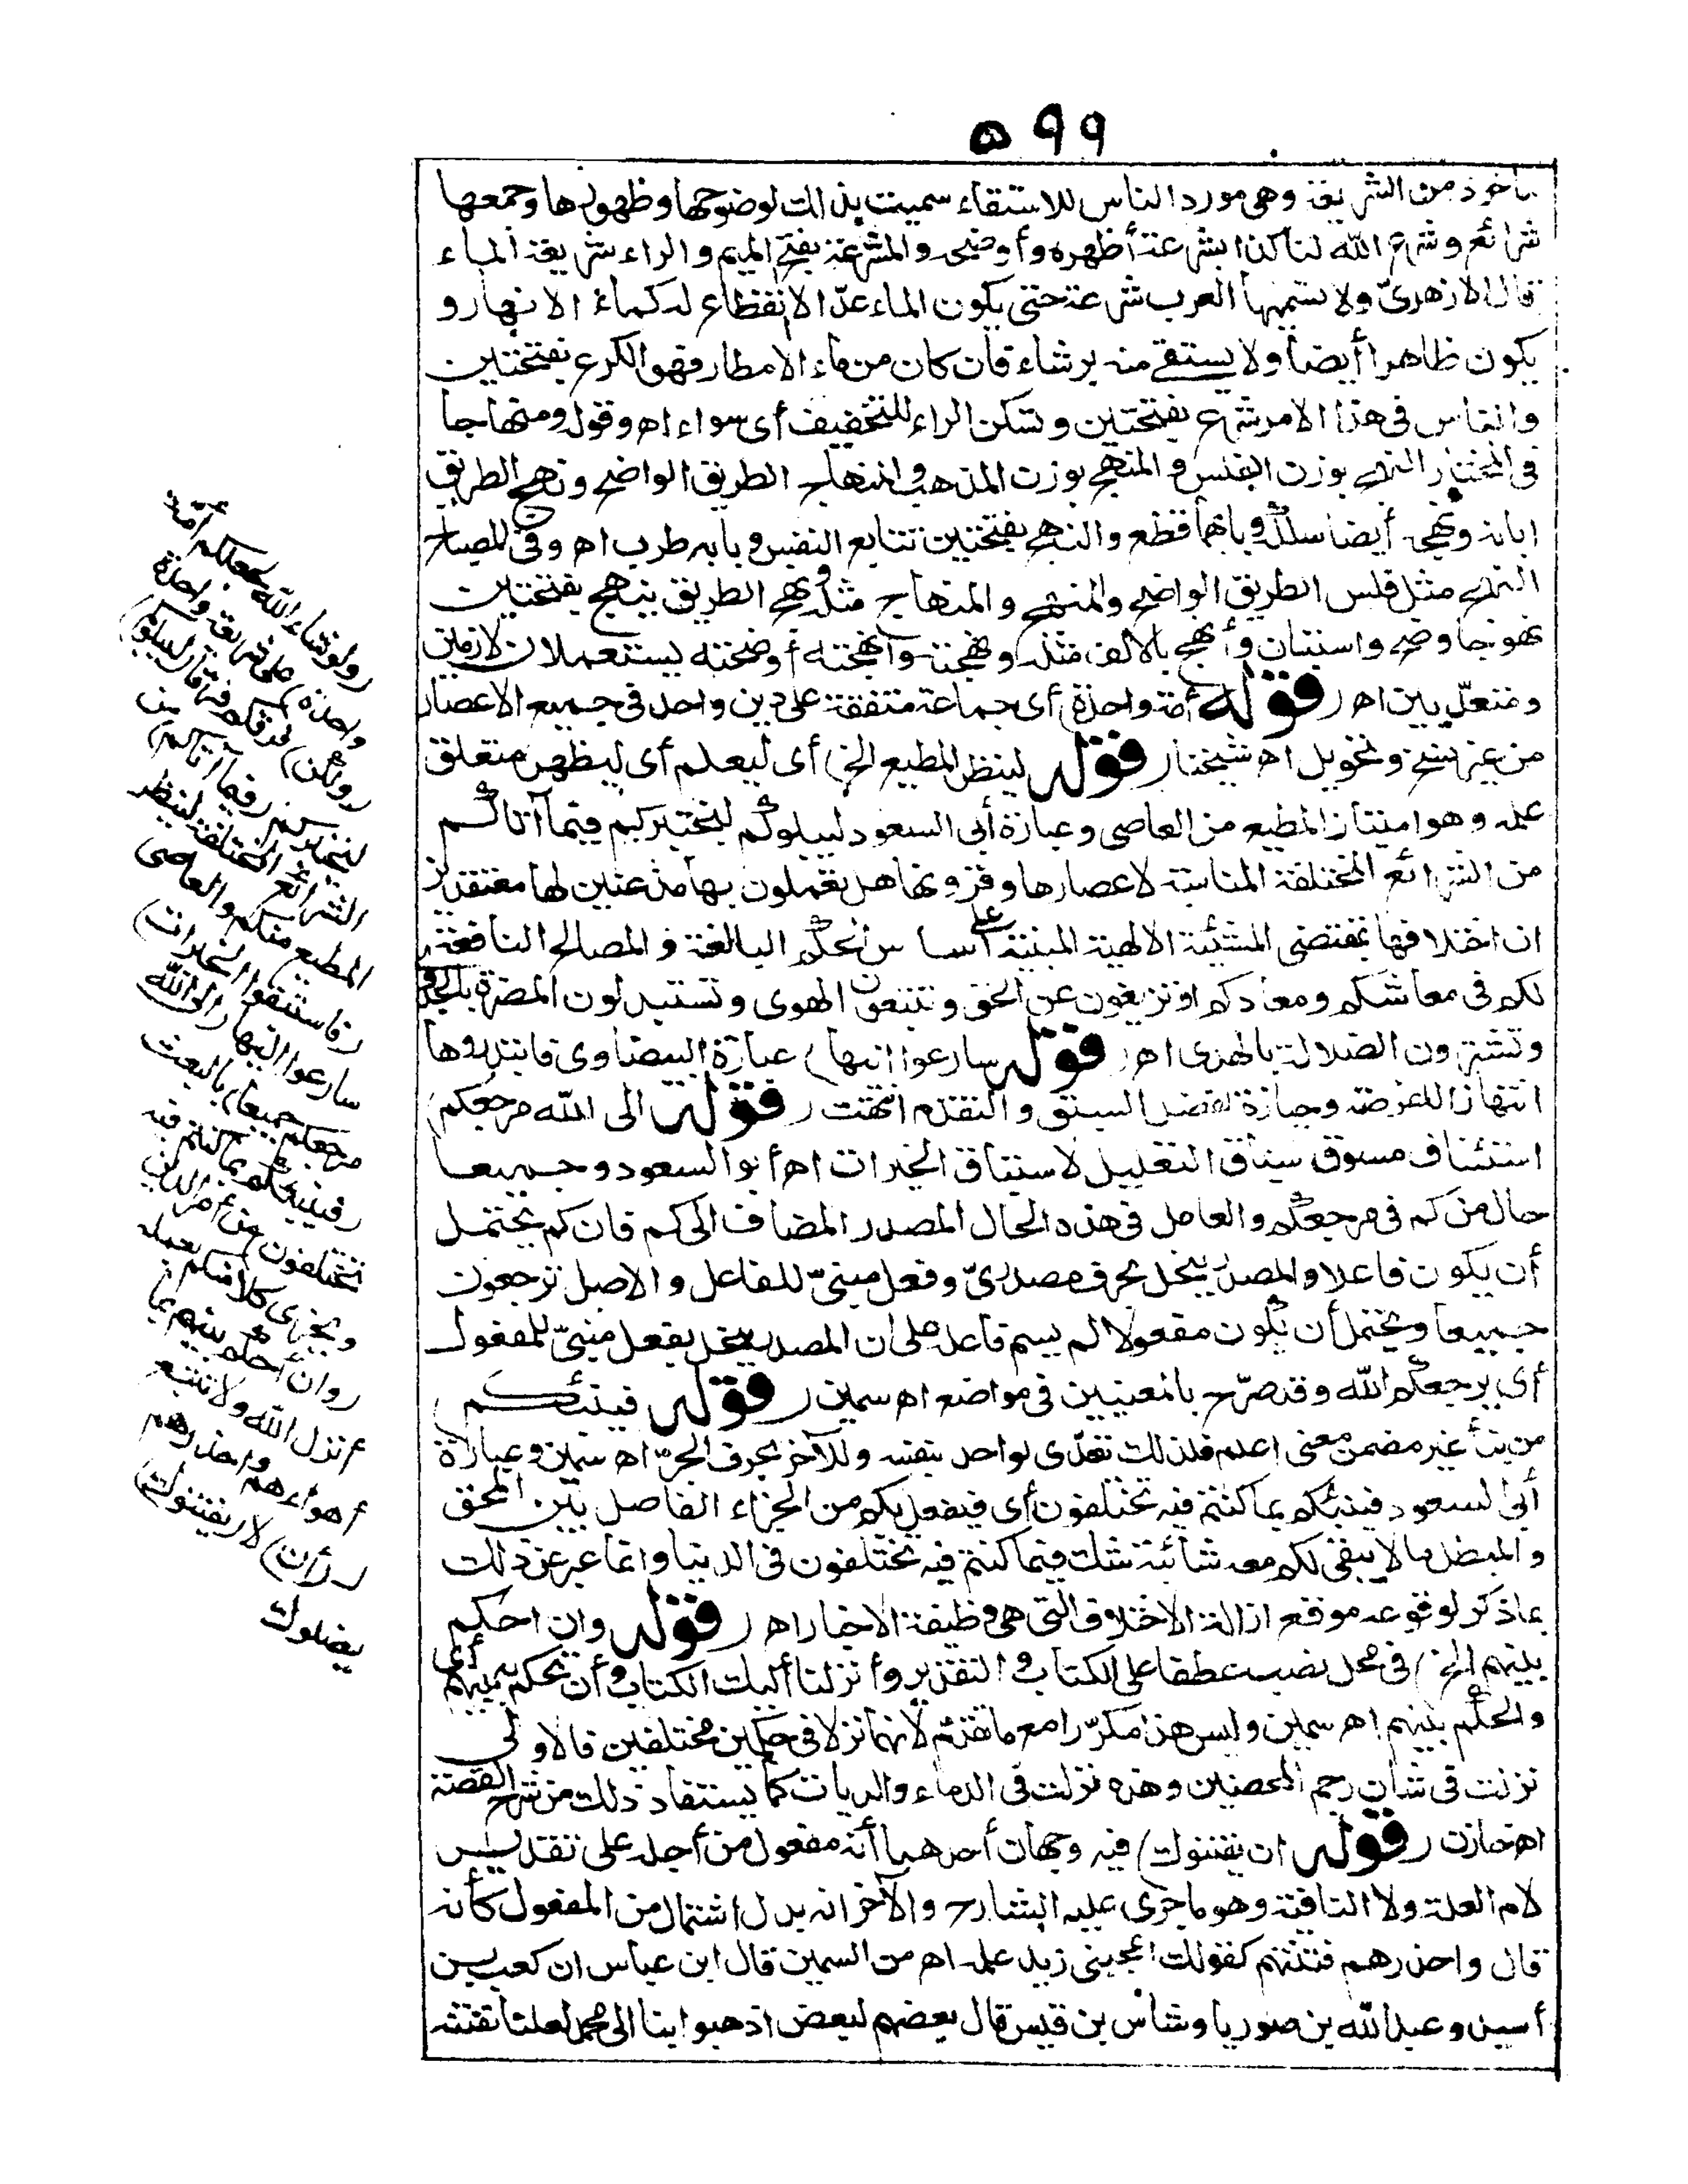 ٥٩٩
مأخوذ من الشريعة وهى مورد الناس للاستقاء سميت بذلك لوضوحها وظهورها وجمعها
شرائع وشرع الله لنا كذا يشرعه أظهره وأوضحه والمشرعة بفتح الميم والراء شريعة الماء
قال الازهرىّ ولا تسميها العرب شرعة حتى يكون الماء عدّا لا انقطاع له كماء الانهار و
يكون ظاهرا أيضا ولا يستقى منه برشاء فان كان من ماء الامطار فهو الكرع بفتحتين
والناس فى هذا الامر شرع بفتحتين وتسكن الراء للتخفيف أى سواء اه وقوله ومنهاجا
فى المختار النهج بوزن الفلس والمنهج بوزن المذهب والمنهاج الطريق الواضح ونهج الطريق
ابانه ونهجه أيضا سلكه وبابهما قطع والنهج بفتحتين تتابع النفس وبابه طرب اه وفى المصباح
النهج مثل فلس الطريق الواضح والمنهج والمنهاج مثله ونهج الطريق ينهج بفتحتين
نهوجا وضح واستبان وأنهج بالالف مثله ونهجته وأنهجته أوضحته يستعملان لازمين
ومتعدّيين اه (قوله أمة واحدة) أى جماعة متفقة على دين واحد فى جميع الاعصار
من غير نسخ وتحويل اه شيخنا (قوله لينظر المطيع الخ) أى ليعلم أى ليظهر متعلق
علمه وهو امتياز المطيع من العاصى وعبارة أبى السعود ليبلوكم ليختبركم فيما آتاكم
من الشرائع المختلفة المناسبة لاعصارها وقرونها هل يعملون بها مذعنين لها معتقدين
ان اختلافها بمقتضى المشيئة الالهية المبنية على أساس الحكم البالغة والمصالح النافعة
لكم فى معاشكم ومعادكم او تزيغون عن الحق وتتبعون الهوى وتستبدلون المضرة بالجدوى
وتشترون الضلالة بالهدى اه (قوله سارعوا اليها) عبارة البيضاوى فابتدروها
انتهازا للفرصة وحيازة لفضل السبق والتقدم انتهت (قوله الى الله مرجعكم)
استئناف مسوق سياق التعليل لاستباق الخيرات اه أبو السعود وجميعا
حال من كم فى مرجعكم والعامل فى هذه الحال المصدر المضاف الى كم فان كم يحتمل
أن يكون فاعلا والمصدر ينحل بحرف مصدرىّ وفعل مبنىّ للفاعل والاصل ترجعون
جميعا ويحتمل أن يكون مفعولا لم يسم فاعله على ان المصدر ينحل بفعل مبنىّ للمفعول
أى يرجعكم الله وقد صرّح بالمعنيين فى مواضع اه سمين (قوله فينبئكم)
من نبأ غير مضمن معنى اعلم فلذلك تعدّى لواحد بنفسه وللآخر بحرف الجرّ اه سمين وعبارة
أبى السعود فينبئكم بما كنتم فيه تختلفون أى فيفعل بكم من الجزاء الفاصل بين المحق
والمبطل ما لا يبقى لكم معه شائبة شك فيما كنتم فيه تختلفون فى الدنيا وانما عبر عن ذلك
بماذكر لوقوعه موقع ازالة الاختلاف التى هى وظيفة الاخبار اه (قوله وان احكم
بينهم الخ) فى محل نصب عطفا على الكتاب والتقدير وأنزلنا اليك الكتاب وأن تحكم بينهم أى
والحكم بينهم اه سمين وليس هذا مكرّرا مع ما تقدم لأنهما نزلا فى حكمين مختلفين فالاولى
نزلت فى شان رجم المحصنين وهذه نزلت فى الدماء والديات كما يستفاد ذلك من شرح القصة
اه خازن (قوله ان يفتنوك) فيه وجهان أحدهما أنه مفعول من أجله على تقدير
لام العلة ولا النافية وهو ما جرى عليه الشارح والآخر انه بدل اشتمال من المفعول كأنه
قال واحذرهم فتنتهم كقولك أعجبنى زيد علمه اه من السمين قال ابن عباس ان كعب بن
أسيد وعبد الله بن صوريا وشاس بن قيس قال بعضهم لبعض اذهبوا بنا الى محمد لعلنا نفتنه
(ولو شاء الله لجعلكم أمة
واحدة) على شريعة واحدة
(ولكن) فرقكم فرقا (ليبلوكم)
ليختبركم (فيما آتاكم) من
الشرائع المختلفة لينظر
المطيع منكم والعاصى
(فاستبقوا الخيرات)
سارعوا اليها (الى الله
مرجعكم جميعا) بالبعث
(فينبئكم بما كنتم فيه
تختلفون) من أمر الدين
ويجزى كلا منكم بعمله
(وان أحكم بينهم بما
أنزل الله ولا تتبع
أهواءهم واحذرهم
(أن) لا (يفتنوك)
يضلوك